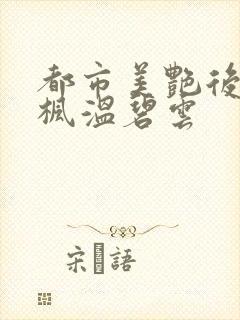 都市美艷後
楓溫碧雲
宋語